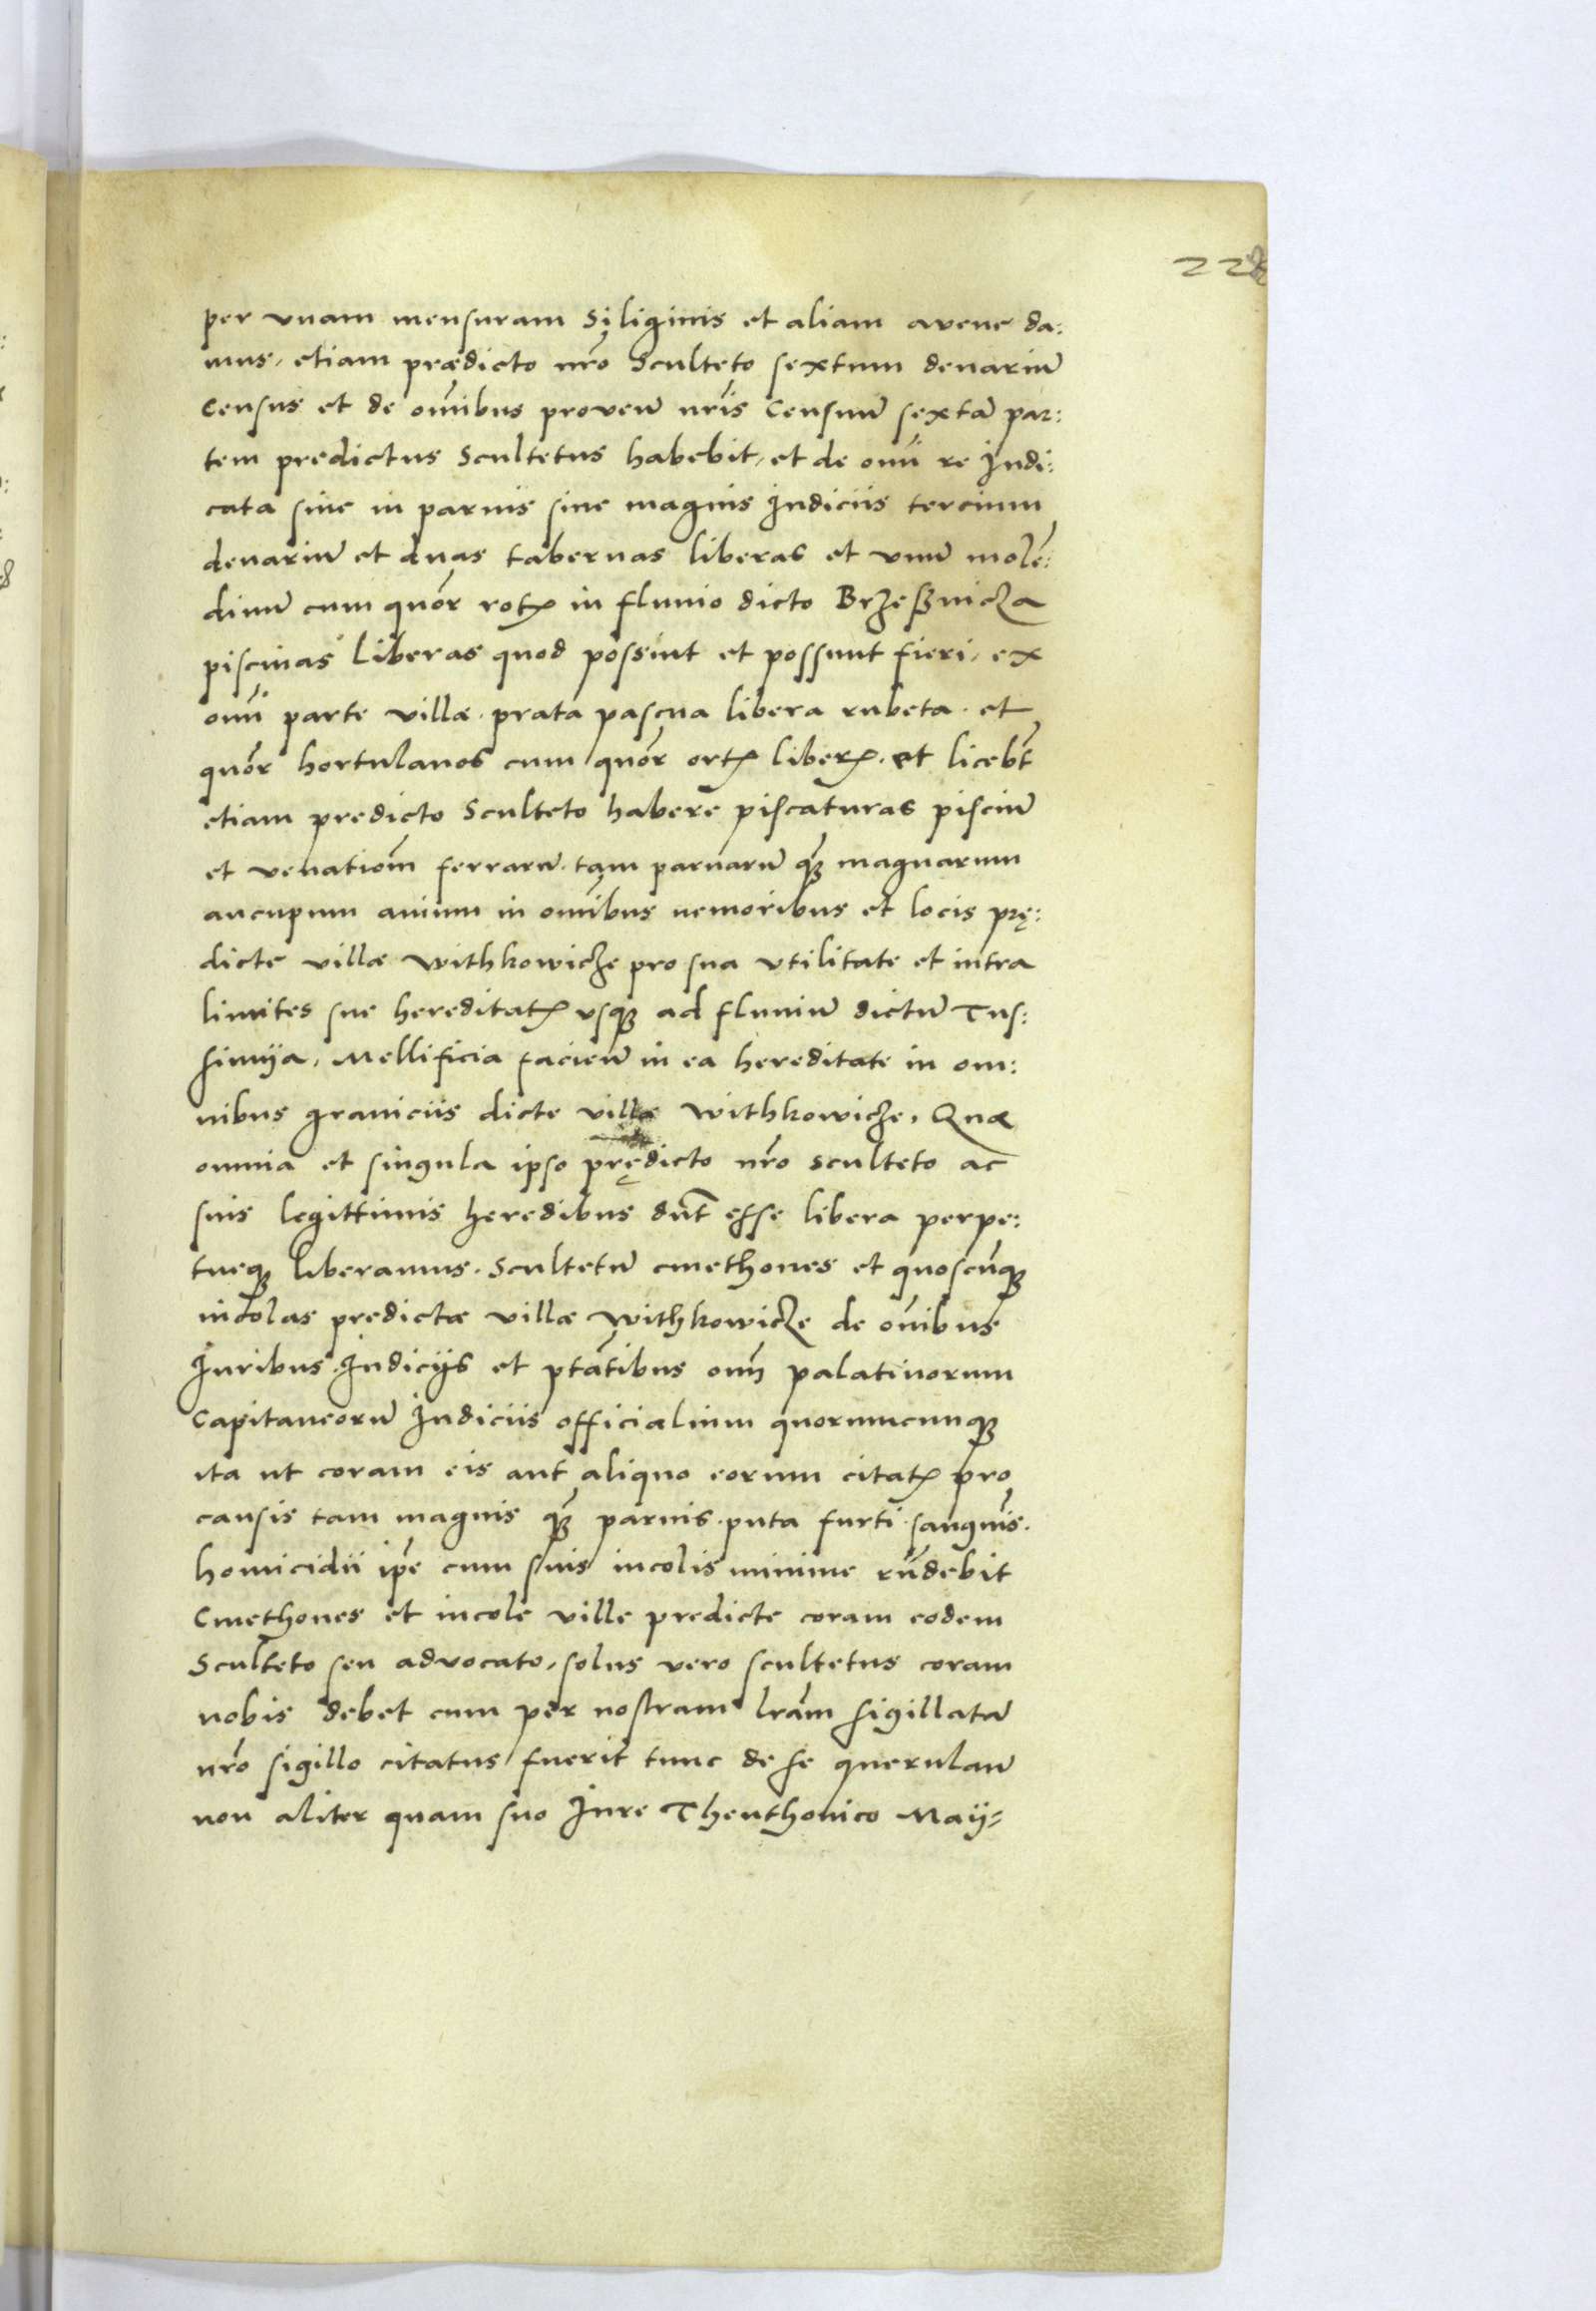 228
per vnam mensuram Siliginis et aliam avene da:
mus, etiam prædicto nr̃o Sculteto sextum denariũ
Census et de om̃ibus proven̄ nr̃is Censuũ sextã par:
tem predictus Scultetus habebit, et de om̃i re Iudi:
cata siue in paruis siue magnis Iudiciis tercium
denariũ et duas tabernas liberas et vnũ molẽ:
dinũ cum quõr rotꝭ in fluuio dicto Brzeßnicza
piscinas liberas quod possint et possunt fieri, ex
om̃i parte villæ. prata pascua libera rubeta. et
quõr hortulanos cum quõr ortꝭ liberꝭ. et licebt̃
etiam predicto Sculteto habere piscaturas pisciũ
et venatiom̃ ferrarũ. tam paruarũ qꝫ̃ magnarum
aucupum auium in om̃ibus nemoribus et locis prę:
dicte villæ Withkowicze pro sua vtilitate et intra
limites sue hereditatꝭ vsqꝫ ad fluuiũ dictũ Tus:
simija, Mellificia facien̄ in ea hereditate in om:
nibus graniciis dicte villæ Withkowicze, Quæ
omnia et singula ipso prędicto nr̃o sculteto ac
suis legittimis heredibus dñt esse libera perpe:
tueqꝫ liberamus. Scultetũ cmethones et quoscũqꝫ
incolas predictæ villæ Withkowicze de om̃ibus
Iuribus. Iudicijs et ptãtibus om̃ palatinorum
Capitaneorũ Iudiciis officialium quorumcunqꝫ
ita ut coram eis aut aliquo eorum citatꝭ pro
causis tam magnis qꝫ̃ paruis. puta furti. sanguĩs.
homicidii ip̃e cum suis incolis minime rñdebit
Cmethones et incole ville predicte coram eodem
Sculteto seu advocato, solus vero scultetus coram
nobis debet cum per nostram lr̃am sigillatã
nr̃o sigillo citatus fuerit tunc de se querulan̄
non aliter quam suo Iure Theuthonico May=